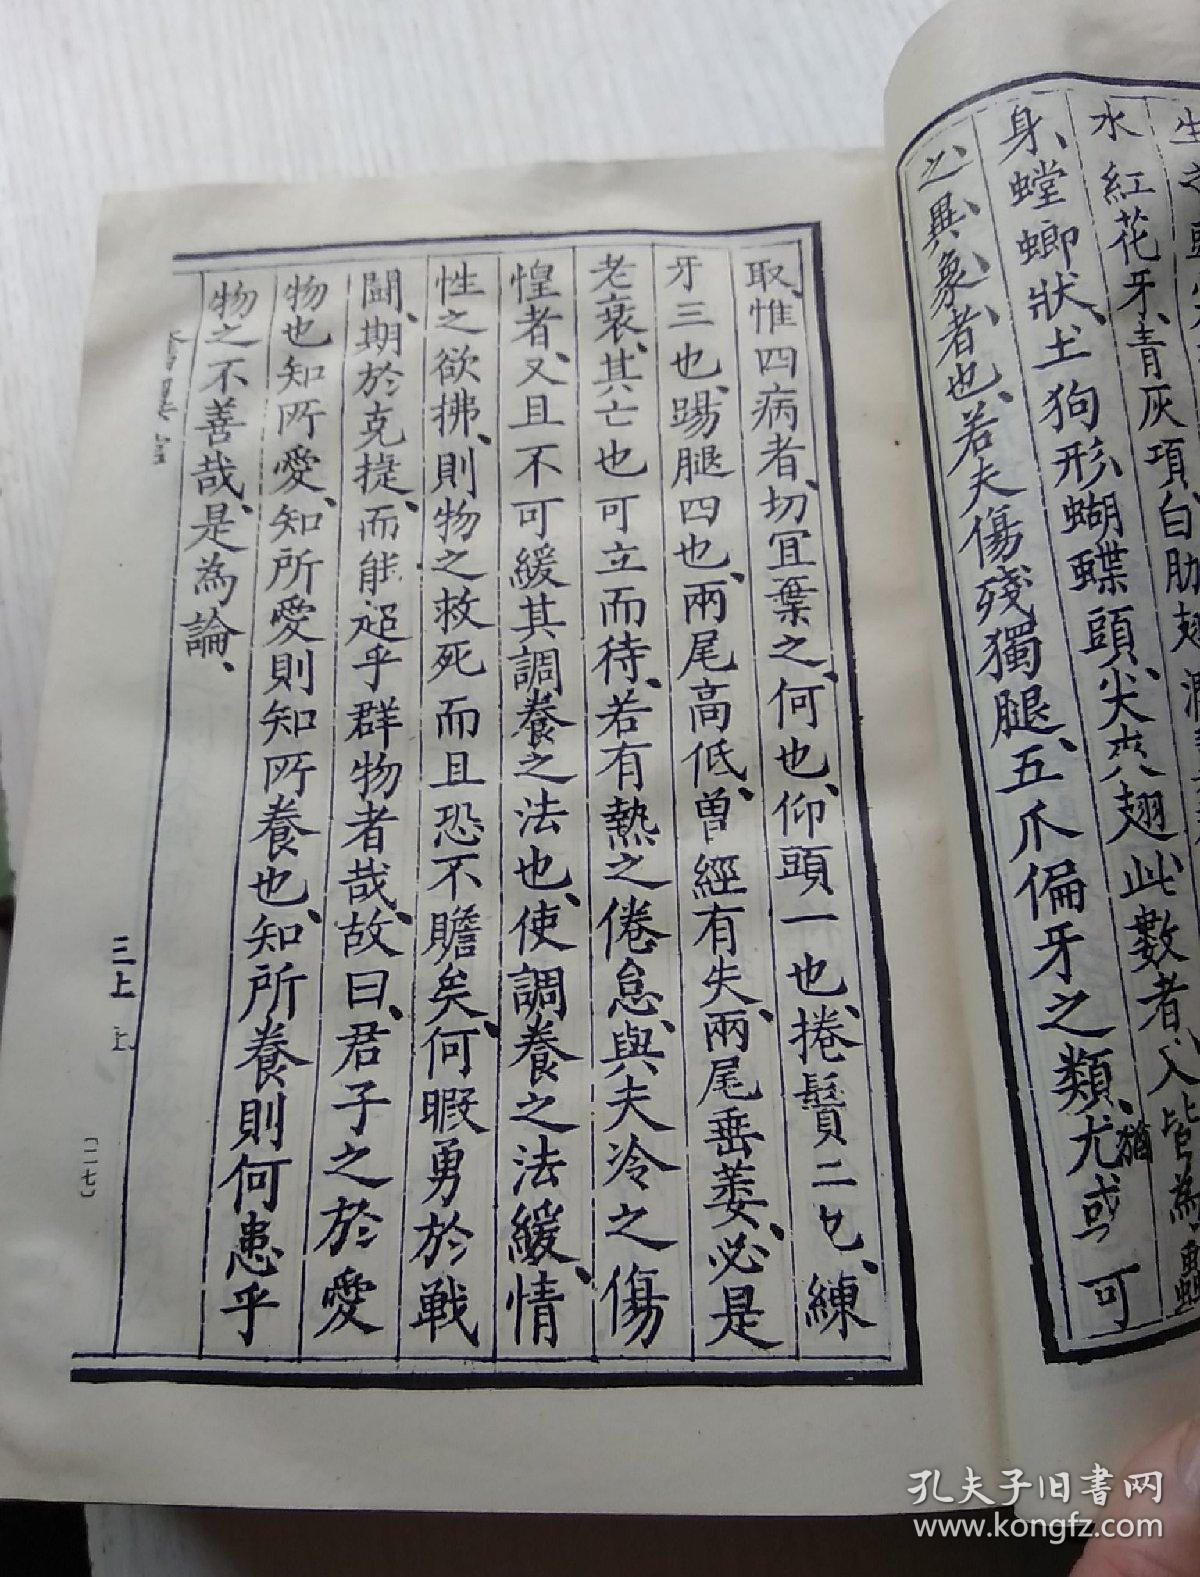 水紅花牙、青灰項、白肋翅、
身、螳螂狀、土狗形、蝴蝶頭、尖夾翅、此數者、
之、異、象、者也、若夫傷殘獨腿、五爪偏牙之類、尤或可
猶
取、惟四病者、切宜棄之、何也、仰頭一也、捲鬚二也、練
牙三也、踢腿四也、兩尾高低、曾經有失、兩尾垂萎、必是
老衰、其亡也可立而待、若有熱之倦怠、與夫冷之傷
惶者、又且不可緩其調養之法也、使調養之法緩、情
性之欲拂、則物之救死而且恐不贍矣、何暇勇於戰
鬪、期於克捷、而能超乎群物者哉、故曰、君子之於愛
物也知所愛、知所愛則知所養也、知所養則何患乎
物之不善哉、是為論、
三上
〔二七〕
孔夫子旧书网
www.kongfz.com